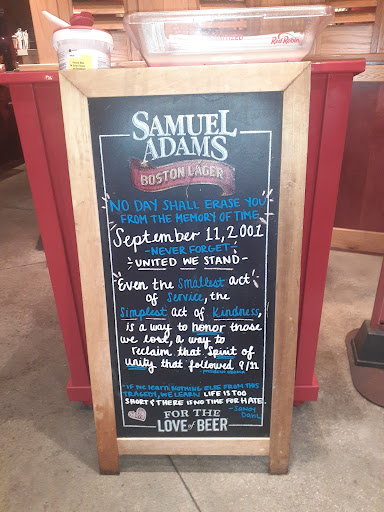 Red Robin
SAMUEL
ADAMS
BOSTON LAGER
NO DAY SHALL ERASE YOU
FROM THE MEMORY OF TIME
September 11, 2001
- NEVER FORGET -
- UNITED WE STAND -
"Even the smallest act
of Service, the
Simplest act of Kindness,
is a way to honor those
we lost, a way to
reclaim that Spirit of
unity that followed 9/11"
- President Obama
"IF WE LEARN NOTHING ELSE FROM THIS
TRAGEDY, WE LEARN LIFE IS TOO
SHORT & THERE IS NO TIME FOR HATE.
- Sandy
Dahl
FOR THE
LOVE of BEER